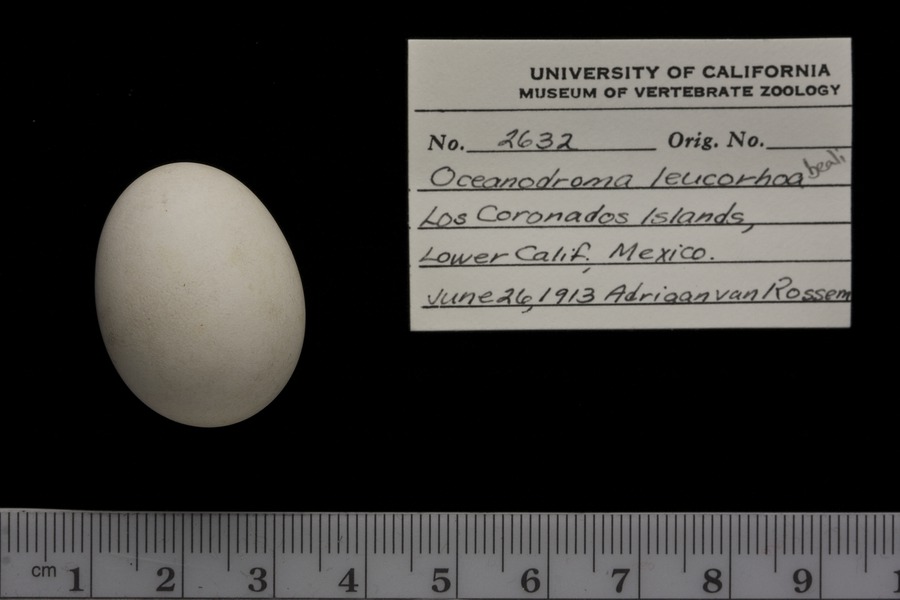 UNIVERSITY OF CALIFORNIA
MUSEUM OF VERTEBRATE ZOOLOGY
No. 2632 Orig. No.
Oceanodroma leucorhoa beali
Los Coronados Islands,
Lower Calif., Mexico.
June 26, 1913 Adriaan van Rossem
cm 1 2 3 4 5 6 7 8 9 1